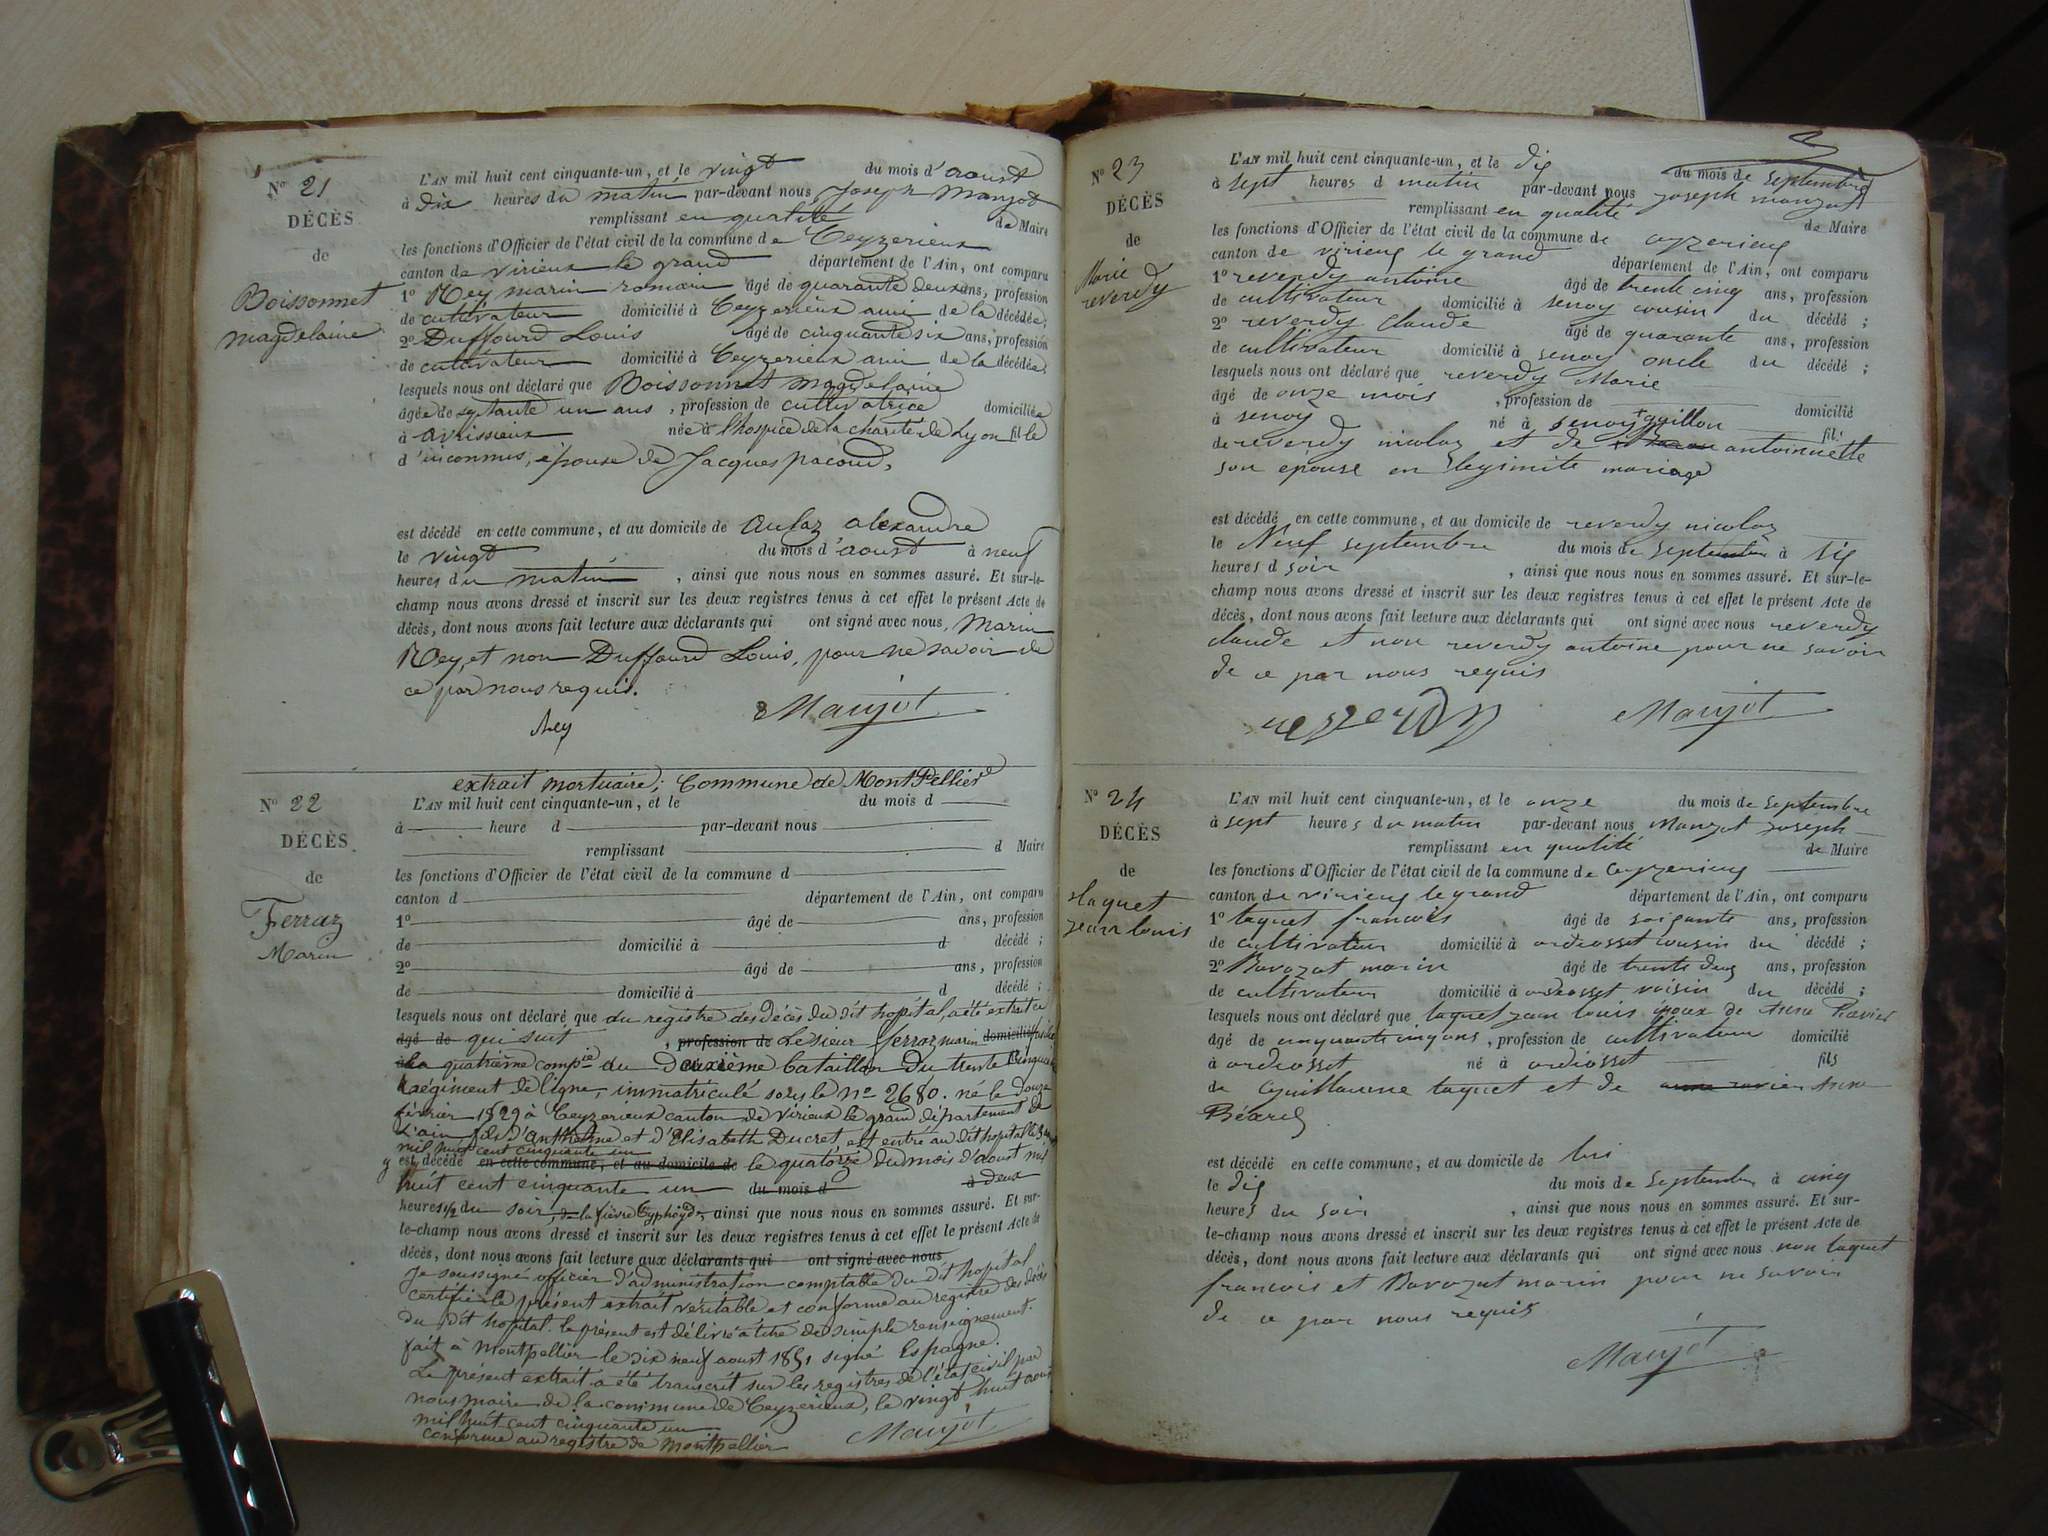 N° 21
DÉCÈS
de
Boissonnet
magdelaine
L'AN mil huit cent cinquante-un, et le vingt du mois d'aoust
à dix heures du matin par-devant nous Joseph Manjot
remplissant en qualité de Maire
les fonctions d'Officier de l'état civil de la commune de Ceyzerieux
canton de virieux le grand département de l'Ain, ont comparu
1° Rey marin romain âgé de quarante deux ans, profession
de cultivateur domicilié à Ceyzerieux ami de la décédée;
2° Duffourd Louis âgé de cinquante six ans, profession
de cultivateur domicilié à Ceyzerieux ami de la décédée,
lesquels nous ont déclaré que Boissonnet magdelaine
âgée de septante un ans, profession de cultivatrice domiciliée
à avrissieux née à l'hospice de la charité de Lyon fille
d'inconnus, épouse de Jacques pacoud,
est décédé en cette commune, et au domicile de Aulaz alexandre
le vingt du mois d'aoust à neuf
heures du matin, ainsi que nous nous en sommes assuré. Et sur-le-
champ nous avons dressé et inscrit sur les deux registres tenus à cet effet le présent Acte de
décès, dont nous avons fait lecture aux déclarants qui ont signé avec nous, Marin
Rey, et non Duffourd Louis, pour ne savoir de
ce par nous requis.
Rey Manjot
N° 22
DÉCÈS
de
Ferraz
Marin
extrait mortuaire; Commune de MontPellier
L'AN mil huit cent cinquante-un, et le du mois d
à heure d par-devant nous
remplissant d Maire
les fonctions d'Officier de l'état civil de la commune d
canton d département de l'Ain, ont comparu
1° âgé de ans, profession
de domicilié à d décédé;
2° âgé de ans, profession
de domicilié à d décédé;
lesquels nous ont déclaré que du registre des décès du dit hopital, a été extrait ce
âgé de qui suit, profession de Le sieur Ferraz marin domicilié fusilier
à la quatrième compie du Deuxième bataillon du trente cinquième
Régiment de ligne, immatriculé sous le n° 2680. né le douze
février 1829 à Ceyzerieux canton de Virieux le grand département de
L'ain fils d'anthelme et d'Elisabeth Ducret, est entré au dit hopital le
mil huit cent cinquante un
y est décédé en cette commune, et au domicile de le quatorze du mois d'aoust mil
huit cent cinquante un du mois d à deux
heures 1/2 du soir, de la fièvre typhoyde, ainsi que nous nous en sommes assuré. Et sur-
le-champ nous avons dressé et inscrit sur les deux registres tenus à cet effet le présent Acte de
décès, dont nous avons fait lecture aux déclarants qui ont signé avec nous
Je soussigné officier d'administration comptable du dit hopital
certifie le présent extrait véritable et conforme au registre des décès
du dit hopital. le présent est délivré à titre de simple renseignement.
fait à Montpellier le dix neuf aoust 1851 signé Espagne.
Le présent extrait a été transcrit sur les registres de l'état civil par
nous maire de la commune de Ceyzerieux, le vingt huit aoust
mil huit cent cinquante un
conforme au registre de montpellier Manjot
N° 23
DÉCÈS
de
Marie
reverdy
L'AN mil huit cent cinquante-un, et le dix du mois de septembre
à sept heures d matin par-devant nous joseph manjot
remplissant en qualité de Maire
les fonctions d'Officier de l'état civil de la commune de ceyzerieux
canton de virieux le grand département de l'Ain, ont comparu
1° reverdy antoine âgé de trente cinq ans, profession
de cultivateur domicilié à senoy cousin du décédé;
2° reverdy claude âgé de quarante ans, profession
de cultivateur domicilié à senoy oncle du décédé;
lesquels nous ont déclaré que reverdy Marie
âgé de onze mois, profession de domicilié
à senoy né à senoy + guillon fil
de reverdy nicolaz et de + antoinnette
son epouse en legimite mariage
est décédé en cette commune, et au domicile de reverdy nicolaz
le Neuf septembre du mois de septembre à six
heures d soir, ainsi que nous nous en sommes assuré. Et sur-le-
champ nous avons dressé et inscrit sur les deux registres tenus à cet effet le présent Acte de
décès, dont nous avons fait lecture aux déclarants qui ont signé avec nous reverdy
claude et non reverdy antoine pour ne savoir
de ce par nous requis
reverdy Manjot
N° 24
DÉCÈS
de
taquet
jean louis
L'AN mil huit cent cinquante-un, et le onze du mois de septembre
à sept heures du matin par-devant nous Manjot joseph
remplissant en qualité de Maire
les fonctions d'Officier de l'état civil de la commune de ceyzerieux
canton de virieux le grand département de l'Ain, ont comparu
1° taquet francois âgé de soixante ans, profession
de cultivateur domicilié à ardosset cousin du décédé;
2° Bavozat marin âgé de trente deux ans, profession
de cultivateur domicilié à ardosset voisin du décédé;
lesquels nous ont déclaré que taquet jean louis époux de Anne Ravier
âgé de cinquante cinq ans, profession de cultivateur domicilié
à ardosset né à ardosset fils
de Guillaume taquet et de anne ravier Anne
Béard
est décédé en cette commune, et au domicile de lui
le dix du mois de septembre à cinq
heures du soir, ainsi que nous nous en sommes assuré. Et sur-
le-champ nous avons dressé et inscrit sur les deux registres tenus à cet effet le présent Acte de
décès, dont nous avons fait lecture aux déclarants qui ont signé avec nous non taquet
francois et Bavozat marin pour ne savoir
de ce par nous requis
Manjot